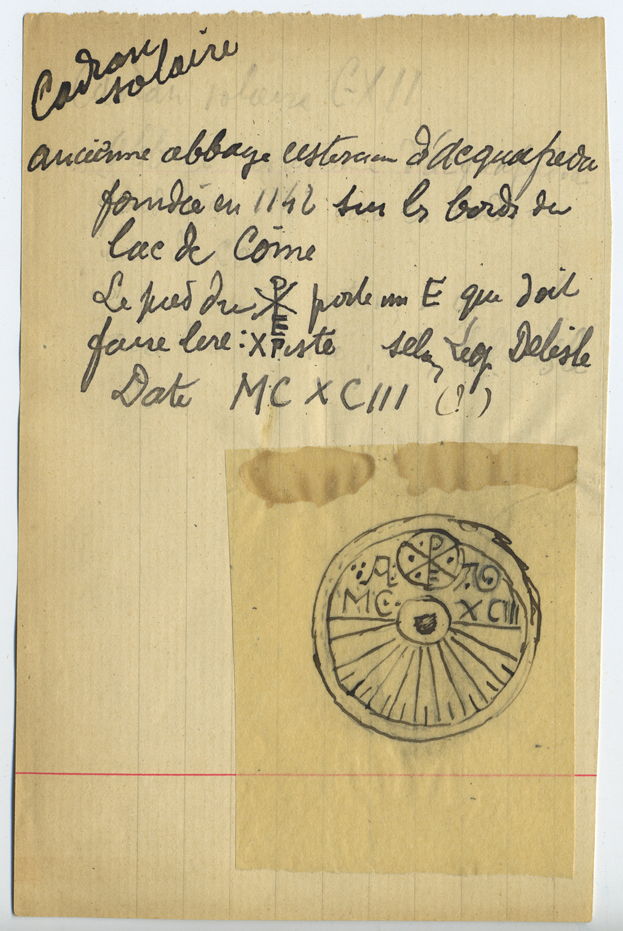 Cadran
solaire
ancienne abbaye cistercien d'Acquafreda
fondée en 1142 sur les bords du
lac de Côme
Le pied du ☧ porte un E qui doit
faire lire : XPEiste selon Léop Delisle
Date MC XCIII (?)
P
E
MC XCIII